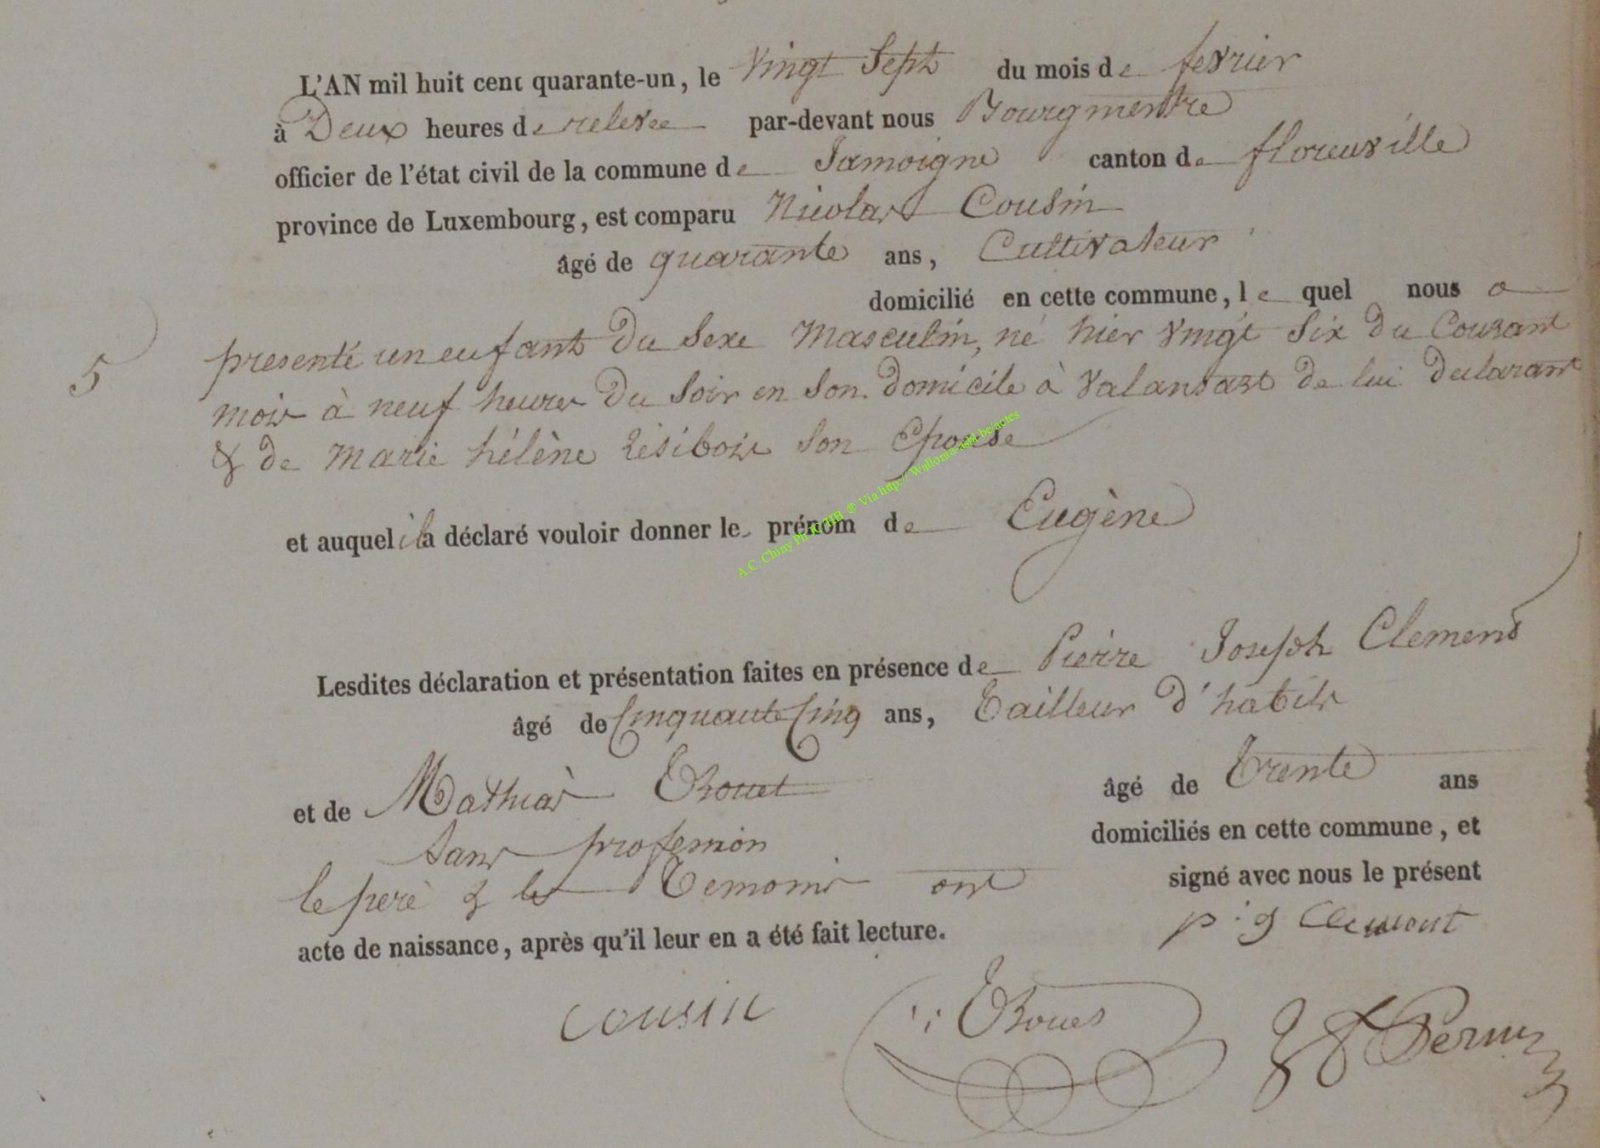 L'AN mil huit cent quarante-un, le Vingt Sept du mois de fevrier
à Deux heures de relevée par-devant nous Bourgmestre
officier de l'état civil de la commune de Jamoigne canton de florenville
province de Luxembourg, est comparu Nicolas Cousin
âgé de quarante ans, Cultivateur
domicilié en cette commune, le quel nous a
5 presenté un enfant du Sexe Masculin, né hier Vingt Six du Courant
mois à neuf heures du Soir en Son domicile à Valansart de lui declarant
& de Marie hélène Lésibois Son Epouse
et auquel il a déclaré vouloir donner le prénom de Eugène
Lesdites déclaration et présentation faites en présence de Pierre Joseph Clement
âgé de Cinquante Cinq ans, Tailleur d'habits
et de Mathias âgé de Trente ans
Sans profession domiciliés en cette commune, et
le pere & les Temoins ont signé avec nous le présent
acte de naissance, après qu'il leur en a été fait lecture.
p: j Clement
cousin
A.C. Chiny Via http://